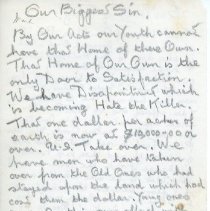 Our Biggest Sin.
By Our Acts our Youth cannot
have that Home of there Own.
That Home of Our Own is the
only Door to Satisfaction.
We have Disposition which
is becoming Hate the Killer.
That one dollar per acher of
earth is now at $15000-00 or
over. U.S. Take over. We
have men who have taken
over from the Old Ones who had
stayed upon the land which had
cost them the dollar. ones